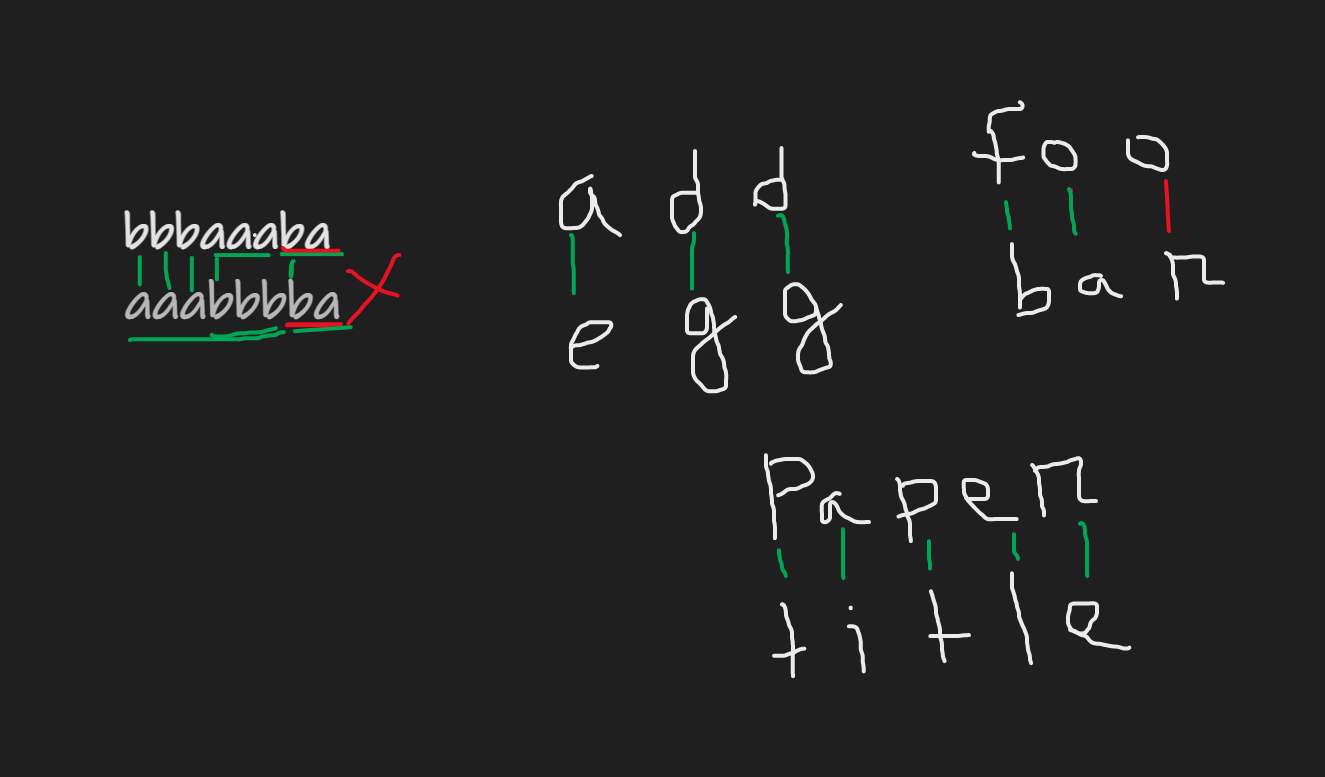 bbbaaaba
aaabbbba
a d d
e g g
f o o
b a r
P a p e r
t i t l e